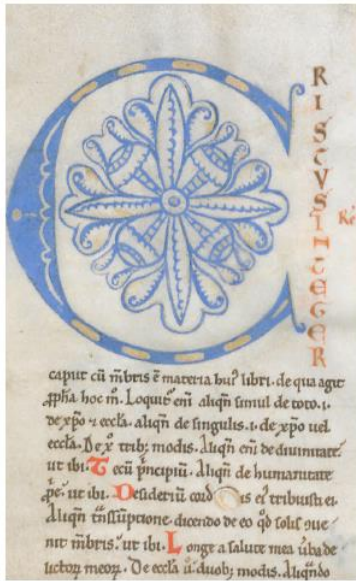 C
RISCVS INTEGER
caput cū mēbris ē materia huiꝰ libri. de qua agit
ꝓpħa hoc m̄. Loquit᷑ enī aliqn̄ simul de toto .i.
de xp̄o ⁊ eccła. aliqn̄ de singulis .i. de xp̄o uel
eccła. De xp̄o trib; modis. Aliqn̄ enī de diuinitate
ut ibi. Tecū p̄ncipiū. Aliqn̄ de humanitate
ut ibi. Desideriū
ei tribuisti ei.
Aliqn̄ dicendo de eo qđ solis
nit mēbris. ut ibi. Longe a salute mea ūba de
lictoꝝ meoꝝ. De eccła ū duob; modis. Aliqn̄do